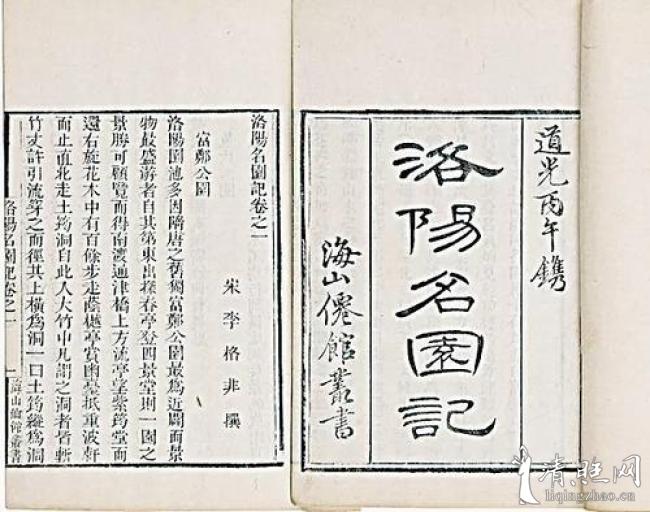 道光丙午鐫
洛陽名園記
海山僊館叢書
洛陽名園記卷之一
宋李格非撰
富鄭公園
洛陽園池多因隋唐之舊獨富鄭公園最爲近闢而景
物最盛游者自其第東出探春亭登四景堂則一園之
景勝可顧覽而得南渡通津橋上方流亭望紫筠堂而
還右旋花木中有百餘步走蔭樾亭賞幽臺抵重波軒
而止直北走土筠洞自此入大竹中凡謂之洞者皆斬
竹丈許引流穿之而徑其上橫爲洞一曰土筠縱爲洞
洛陽名園記卷之一 一 海山仙館叢書
liqingzhao.cn